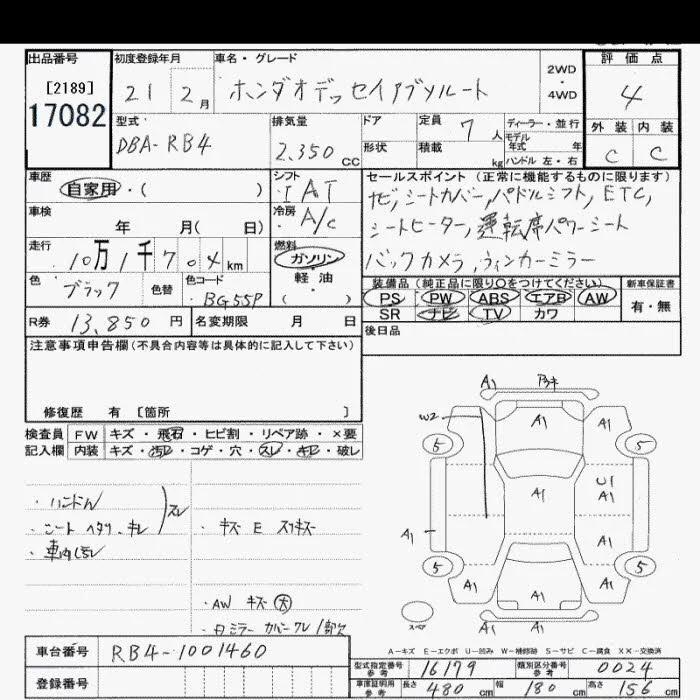 出品番号 初度登録年月 車名・グレード 評価点
[2189] 21 2月 ホンダオデッセイアブソルート 2WD・4WD 4
17082
型式 排気量 ドア 定員 7人 ディーラー・並行 外装 内装
DBA-RB4 2,350cc 形状 積載 kg モデル年式 年 C C
ハンドル 左・右
車歴 シフト セールスポイント (正常に機能するものに限ります)
自家用・( ) IAT ナビ,シートカバー,パドルシフト,ETC,
車検 年 月( 日) 冷房 A/C シートヒーター,運転席パワーシート
走行 10万1千704km 燃料 ガソリン バックカメラ,ウィンカーミラー
軽油
( )
色 ブラック 色替 色コード BG55P
装備品 (純正品に限り○をつけてください) 新車保証書
PS PW ABS エアB AW 有・無
SR ナビ TV カワ
R券 13,850円 名変期限 月 日 後日品
注意事項申告欄(不具合内容等は具体的に記入して下さい)
修復歴 有 [箇所 ]
検査員 FW キズ・飛石・ヒビ割・リペア跡・×要
記入欄 内装 キズ・汚レ・コゲ・穴・スレ・キレ・破レ
・ハンドル
・シート ヘタリ.キレ スレ
・車内汚レ
・キズ E スリキズ
・AW キズ 大
A1 Bキ
W2 A1 A1
5 5
A1 U1
A1
A1 A1
5 5
A1 A1 A1
A1 A1
スペア
A-キズ E-エクボ U-凹み W-補修跡 S-サビ C-腐食 XX-交換済
車台番号 RB4-1001460
登録番号
型式指定番号 参考 16179 類別区分番号 参考 0024
車庫証明用 参考 長さ 480cm 幅 180cm 高さ 156cm